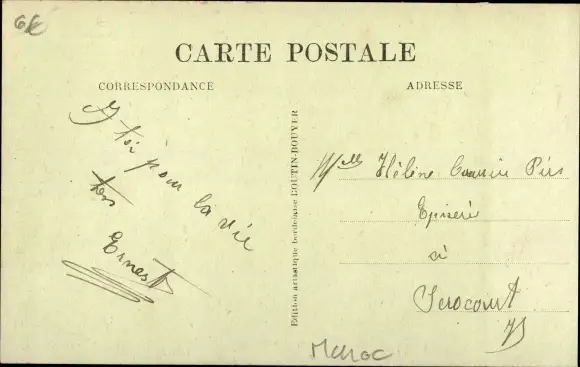 6€
CARTE POSTALE
CORRESPONDANCE
ADRESSE
A toi pour la vie
ton
Ernest
Edition artistique bordelaise BOUTIN-BOUYER
Mlle Hélène
Episerie
à
Serocourt
Maroc